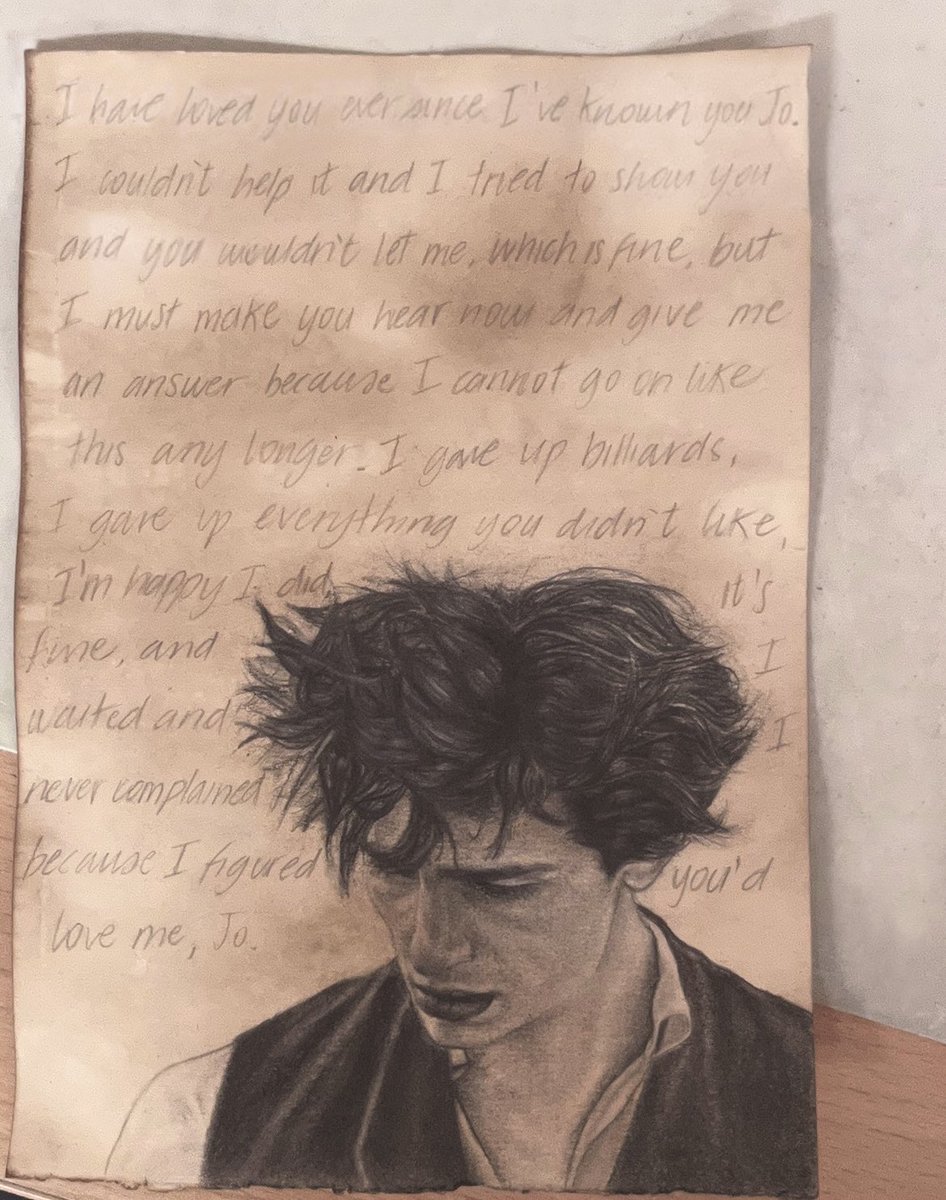 I have loved you ever since I've known you Jo.
I couldn't help it and I tried to show you
and you wouldn't let me, which is fine, but
I must make you hear now and give me
an answer because I cannot go on like
this any longer. I gave up billiards,
I gave up everything you didn't like,
I'm happy I did, it's
fine, and I
waited and I
never complained
because I figured you'd
love me, Jo.